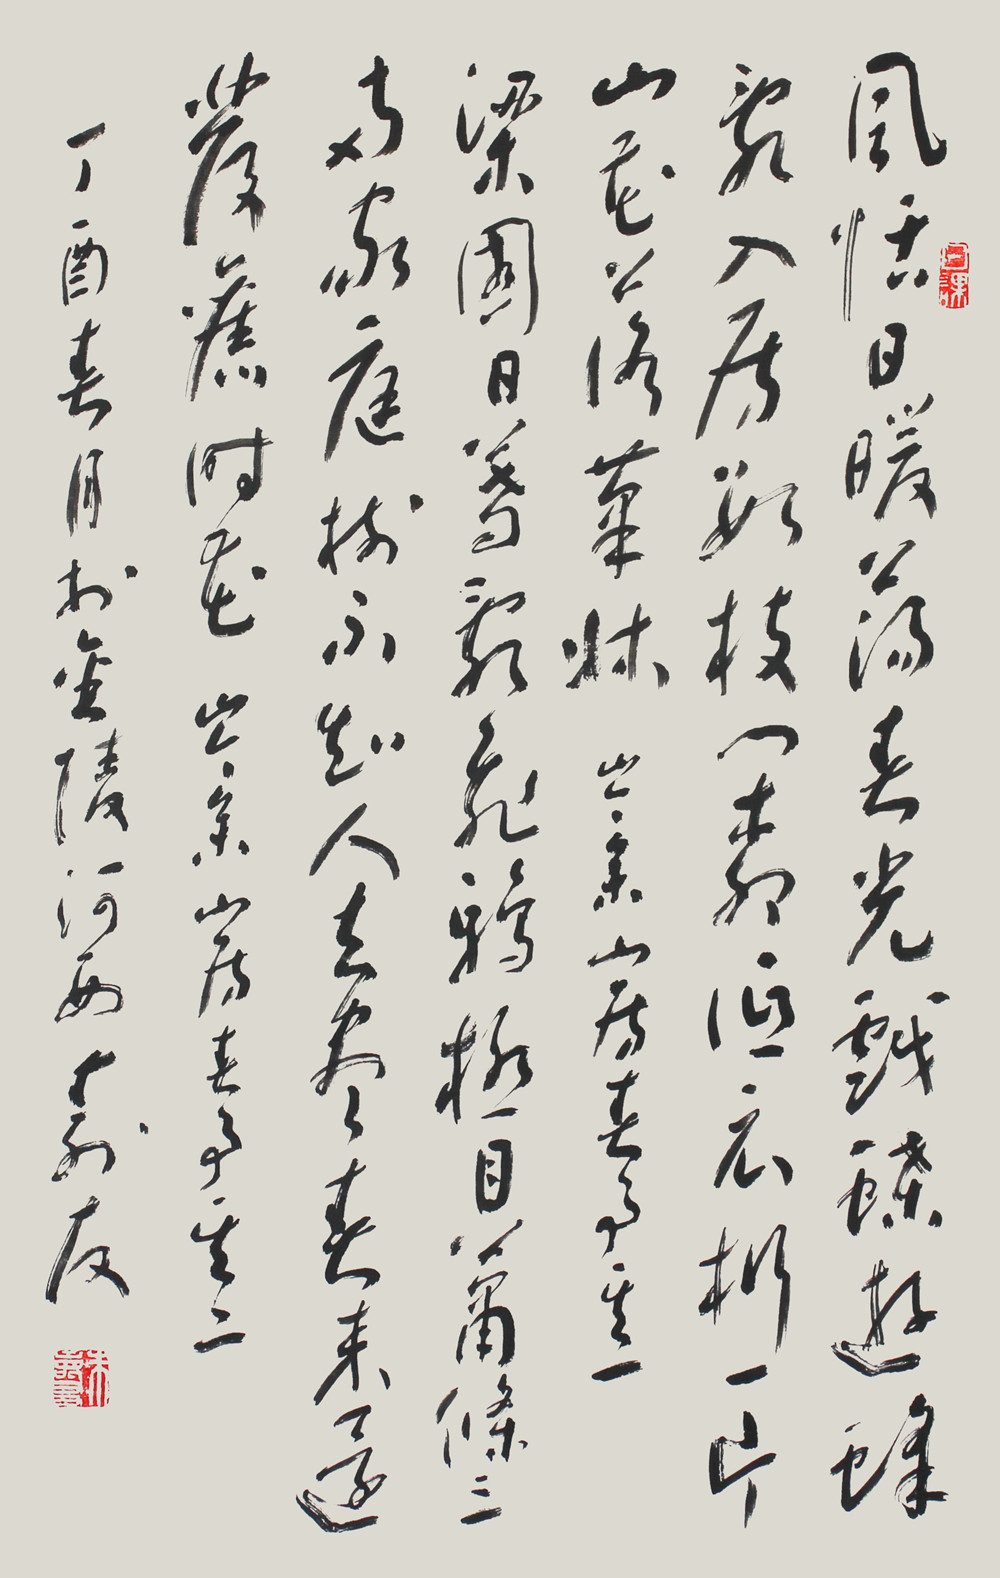 風恬日暖蕩春光戲蝶遊蜂
亂入房數枝門柳低衣桁一片
山花落筆牀 岑參山房春事其一
梁園日暮亂飛鴉極目蕭條三
兩家庭樹不知人去盡春來還
發舊時花 岑參山房春事其二
丁酉春月於金陵河西 壽友